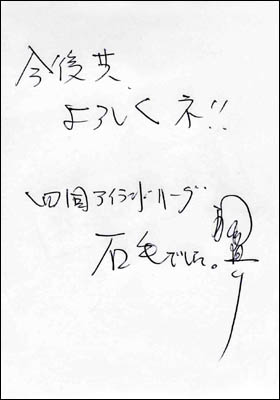 今後共、
よろしくネ!!
四国アイランドリーグ
石毛でした。